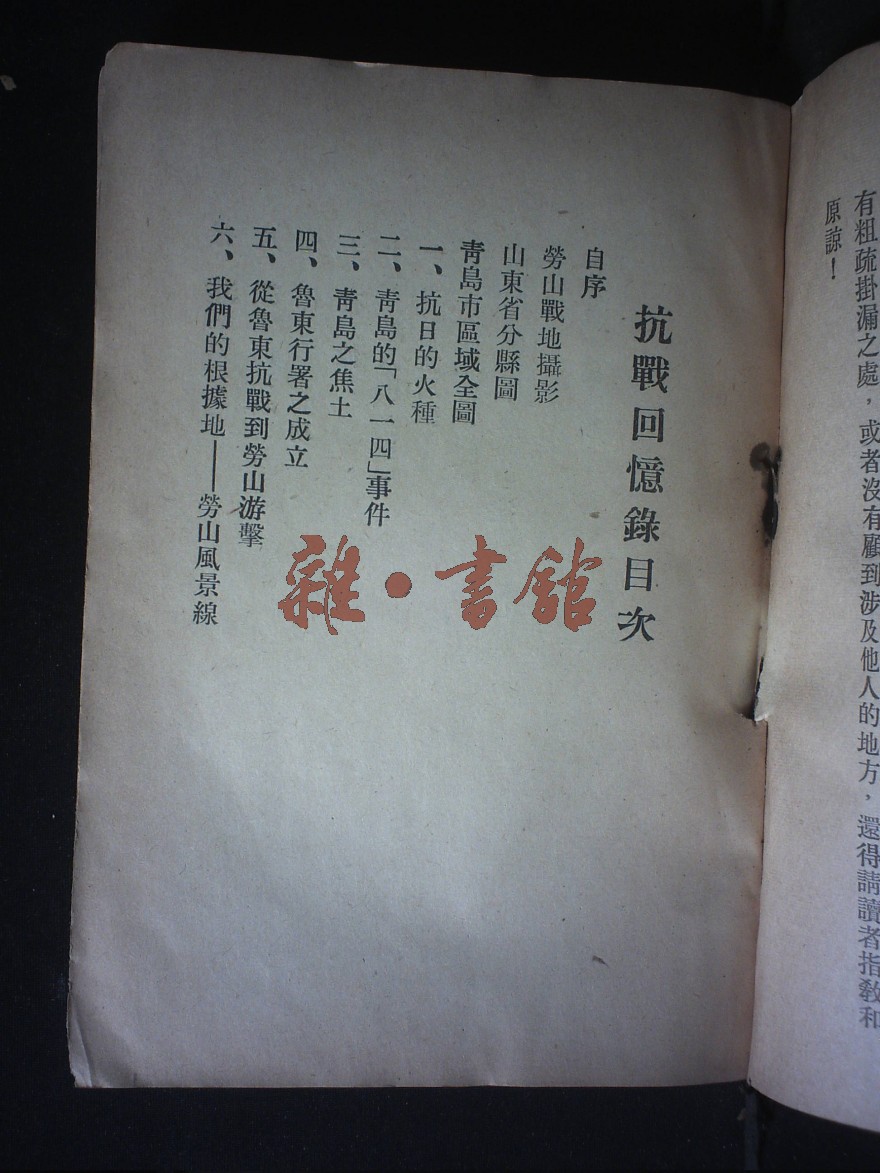 有粗疏掛漏之處，或者沒有顧到涉及他人的地方，還得請讀者指教和
原諒！
抗戰回憶錄目次
自序
勞山戰地攝影
山東省分縣圖
青島市區域全圖
一、抗日的火種
二、青島的「八一四」事件
三、青島之焦土
四、魯東行署之成立
五、從魯東抗戰到勞山游擊
六、我們的根據地——勞山風景線
雜·書館